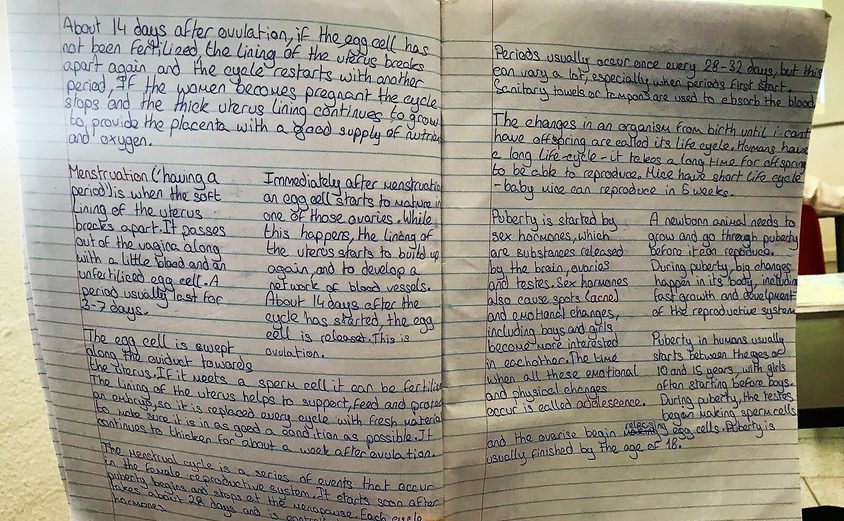 About 14 days after ovulation, if the egg cell has
not been fertilized the lining of the uterus breaks
apart again and the cycle restarts with another
period, If the women becomes pregnant the cycle
stops and the thick uterus lining continues to grow
to provide the placenta with a good supply of nutrien
and oxygen.
Menstruation ('having a
period') is when the soft
lining of the uterus
breaks apart. It passes
out of the vagina along
with a little blood and an
unfertilized egg cell. A
period usually last for
3-7 days.
Immediately after menstruation
an egg cell starts to mature in
one of those ovaries. While
this happens, the lining of
the uterus starts to build up
again, and to develop a
network of blood vessels.
About 14 days after the
cycle has started, the egg
cell is released. This is
ovulation.
The egg cell is swept
along the oviduct towards
the uterus. If it meets a sperm cell it can be fertilise
The lining of the uterus helps to support, feed and protect
an embryo, so it is replaced every cycle with fresh material
to make sure it is in as good a condition as possible. It
continues to thicken for about a week after ovulation.
The menstrual cycle is a series of events that occur
in the female reproductive system. It starts soon after
puberty begins and stops at the menopause. Each cycle
takes about 28 days and is
hormones
Periods usually occur once every 28-32 days, but this
can vary a lot, especially when periods first start.
Sanitary towels or tampons are used to absorb the blood
The changes in an organism from birth until i cant
have offspring are called its life cycle. Humans have
a long life-cycle - it takes a long time for offspring
to be able to reproduce. Mice have short life cycle
- baby mice can reproduce in 6 weeks.
Puberty is started by
sex hormones, which
are substances released
by the brain, ovaries
and testes. Sex hormones
also cause spots (acne)
and emotional changes,
including boys and girls
become more interested
in eachother. The time
when all these emotional
and physical changes
occur is called adolesence.
A newborn animal needs to
grow and go through puberty
before it can reproduce.
During puberty, big changes
happen in its body, including
fast growth and develpment
of the reproductive system
Puberty in humans usually
starts between the ages of
10 and 15 years, with girls
often starting before boys.
During puberty, the testes
began making sperm cells
and the overise begin releasing egg cells. Puberty is
usually finished by the age of 18.